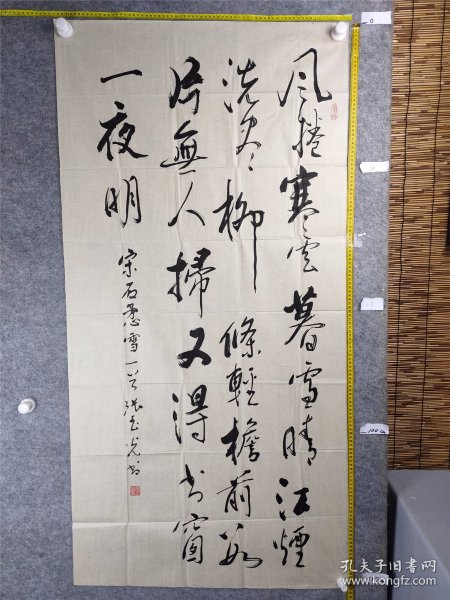 风捲寒云暮雪晴江煙
洗尽柳條輕檐前数
片無人掃又得书窗
一夜明
宋石雪一首張光书
100 cm
孔夫子旧书网
www.kongfz.com